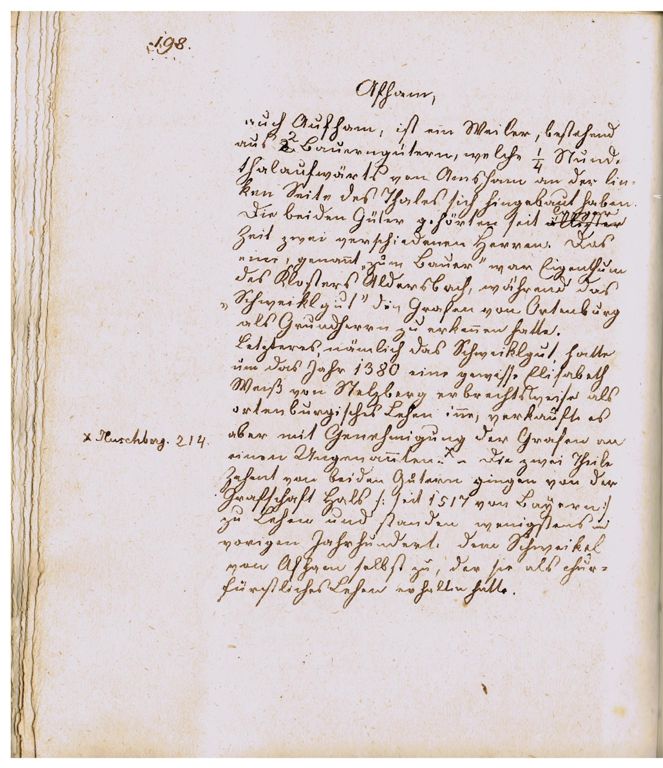 198.
Afham,
auch Aufham, ist ein Weiler, bestehend
aus 2 Bauerngütern, welche 1/4 Stund
thalaufwärts von Amsham an der lin-
ken Seite des Thales sich hingebaut haben.
Die beiden Güter gehörten seit
Zeit zwei verschiedenen Herren. Das
eine, genannt „zum Bauer" war Eigenthum
des Klosters Aldersbach, während das
„Schweiklgut" die Grafen von Ortenburg
als Grundherrn zu erkennen hatte.
Letzteres, nämlich das Schweiklgut, hatte
um das Jahr 1380 eine gewisse Elisabeth
Weiß von Stelzberg erbrechtsweise als
ortenburgisches Lehen inne, verkaufte es
aber mit Genehmigung der Grafen an
einen Ungenannten.x – Die zwei Theile
x Huschberg. 214.
Zehent von beiden Gütern gingen von der
Grafschaft Hals /: seit 1517 von Bayern :/
zu Lehen und standen wenigstens im
vorigen Jahrhundert dem Schweikel
von Afham selbst zu, der sie als chur-
fürstliches Lehen erhalten hatte.